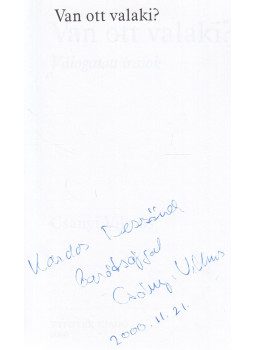 Van ott valaki?
Kardos Dezsőnek
Barátsággal
Csányi Vilmos
2000.11.21.